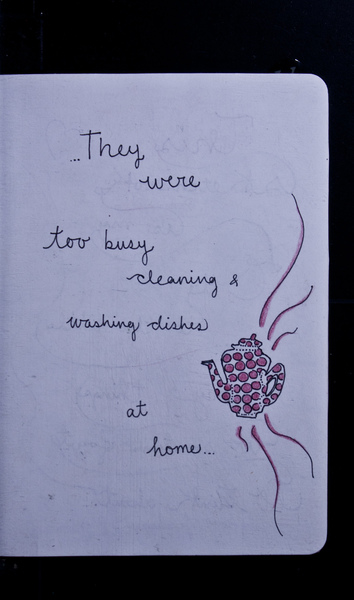 ...They
were
too busy
cleaning &
washing dishes
at
home...